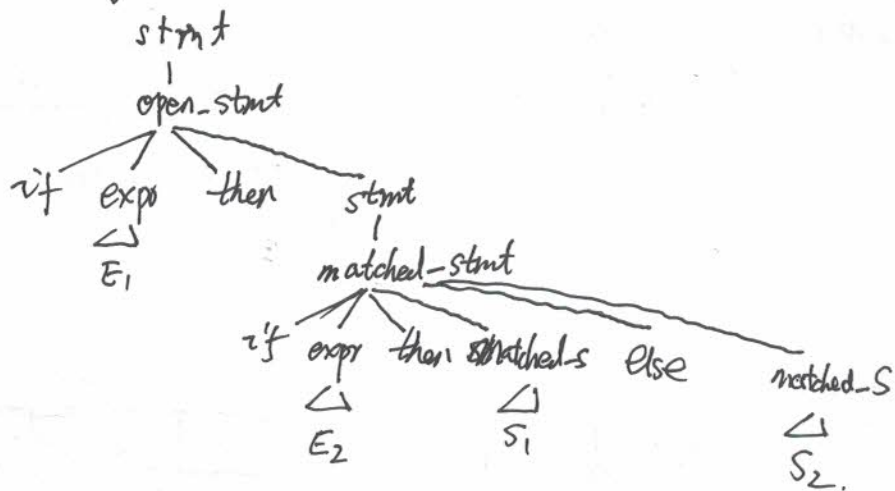 stmt
open_stmt
if expr then stmt
E1
matched_stmt
if expr then matched_s else matched_s
E2 S1 S2.